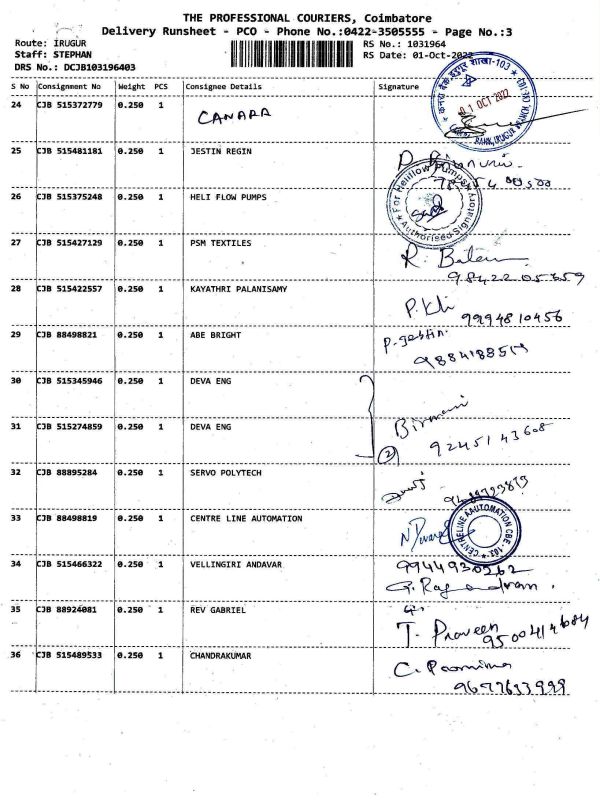 THE PROFESSIONAL COURIERS, Coimbatore
Delivery Runsheet - PCO - Phone No.:0422-3505555 - Page No.:3
Route: IRUGUR RS No.: 1031964
Staff: STEPHAN RS Date: 01-Oct-2022
DRS No.: DCJB103196403
S No Consignment No Weight PCS Consignee Details Signature
24 CJB 515372779 0.250 1 CANARA
01 OCT 2022
25 CJB 515481181 0.250 1 JESTIN REGIN
26 CJB 515375248 0.250 1 HELI FLOW PUMPS
For Heliflow Pumps
Authorised Signatory
27 CJB 515427129 0.250 1 PSM TEXTILES R.
98422 05359
28 CJB 515422557 0.250 1 KAYATHRI PALANISAMY
9994810456
29 CJB 88498821 0.250 1 ABE BRIGHT
30 CJB 515345946 0.250 1 DEVA ENG
31 CJB 515274859 0.250 1 DEVA ENG
2 92451 43608
32 CJB 88895284 0.250 1 SERVO POLYTECH
33 CJB 88498819 0.250 1 CENTRE LINE AUTOMATION
CENTRELINE AAUTOMATION CBE-103
34 CJB 515466322 0.250 1 VELLINGIRI ANDAVAR 9944930262
35 CJB 88924081 0.250 1 REV GABRIEL
T. Praveen
36 CJB 515489533 0.250 1 CHANDRAKUMAR C. Poornima
9677633999